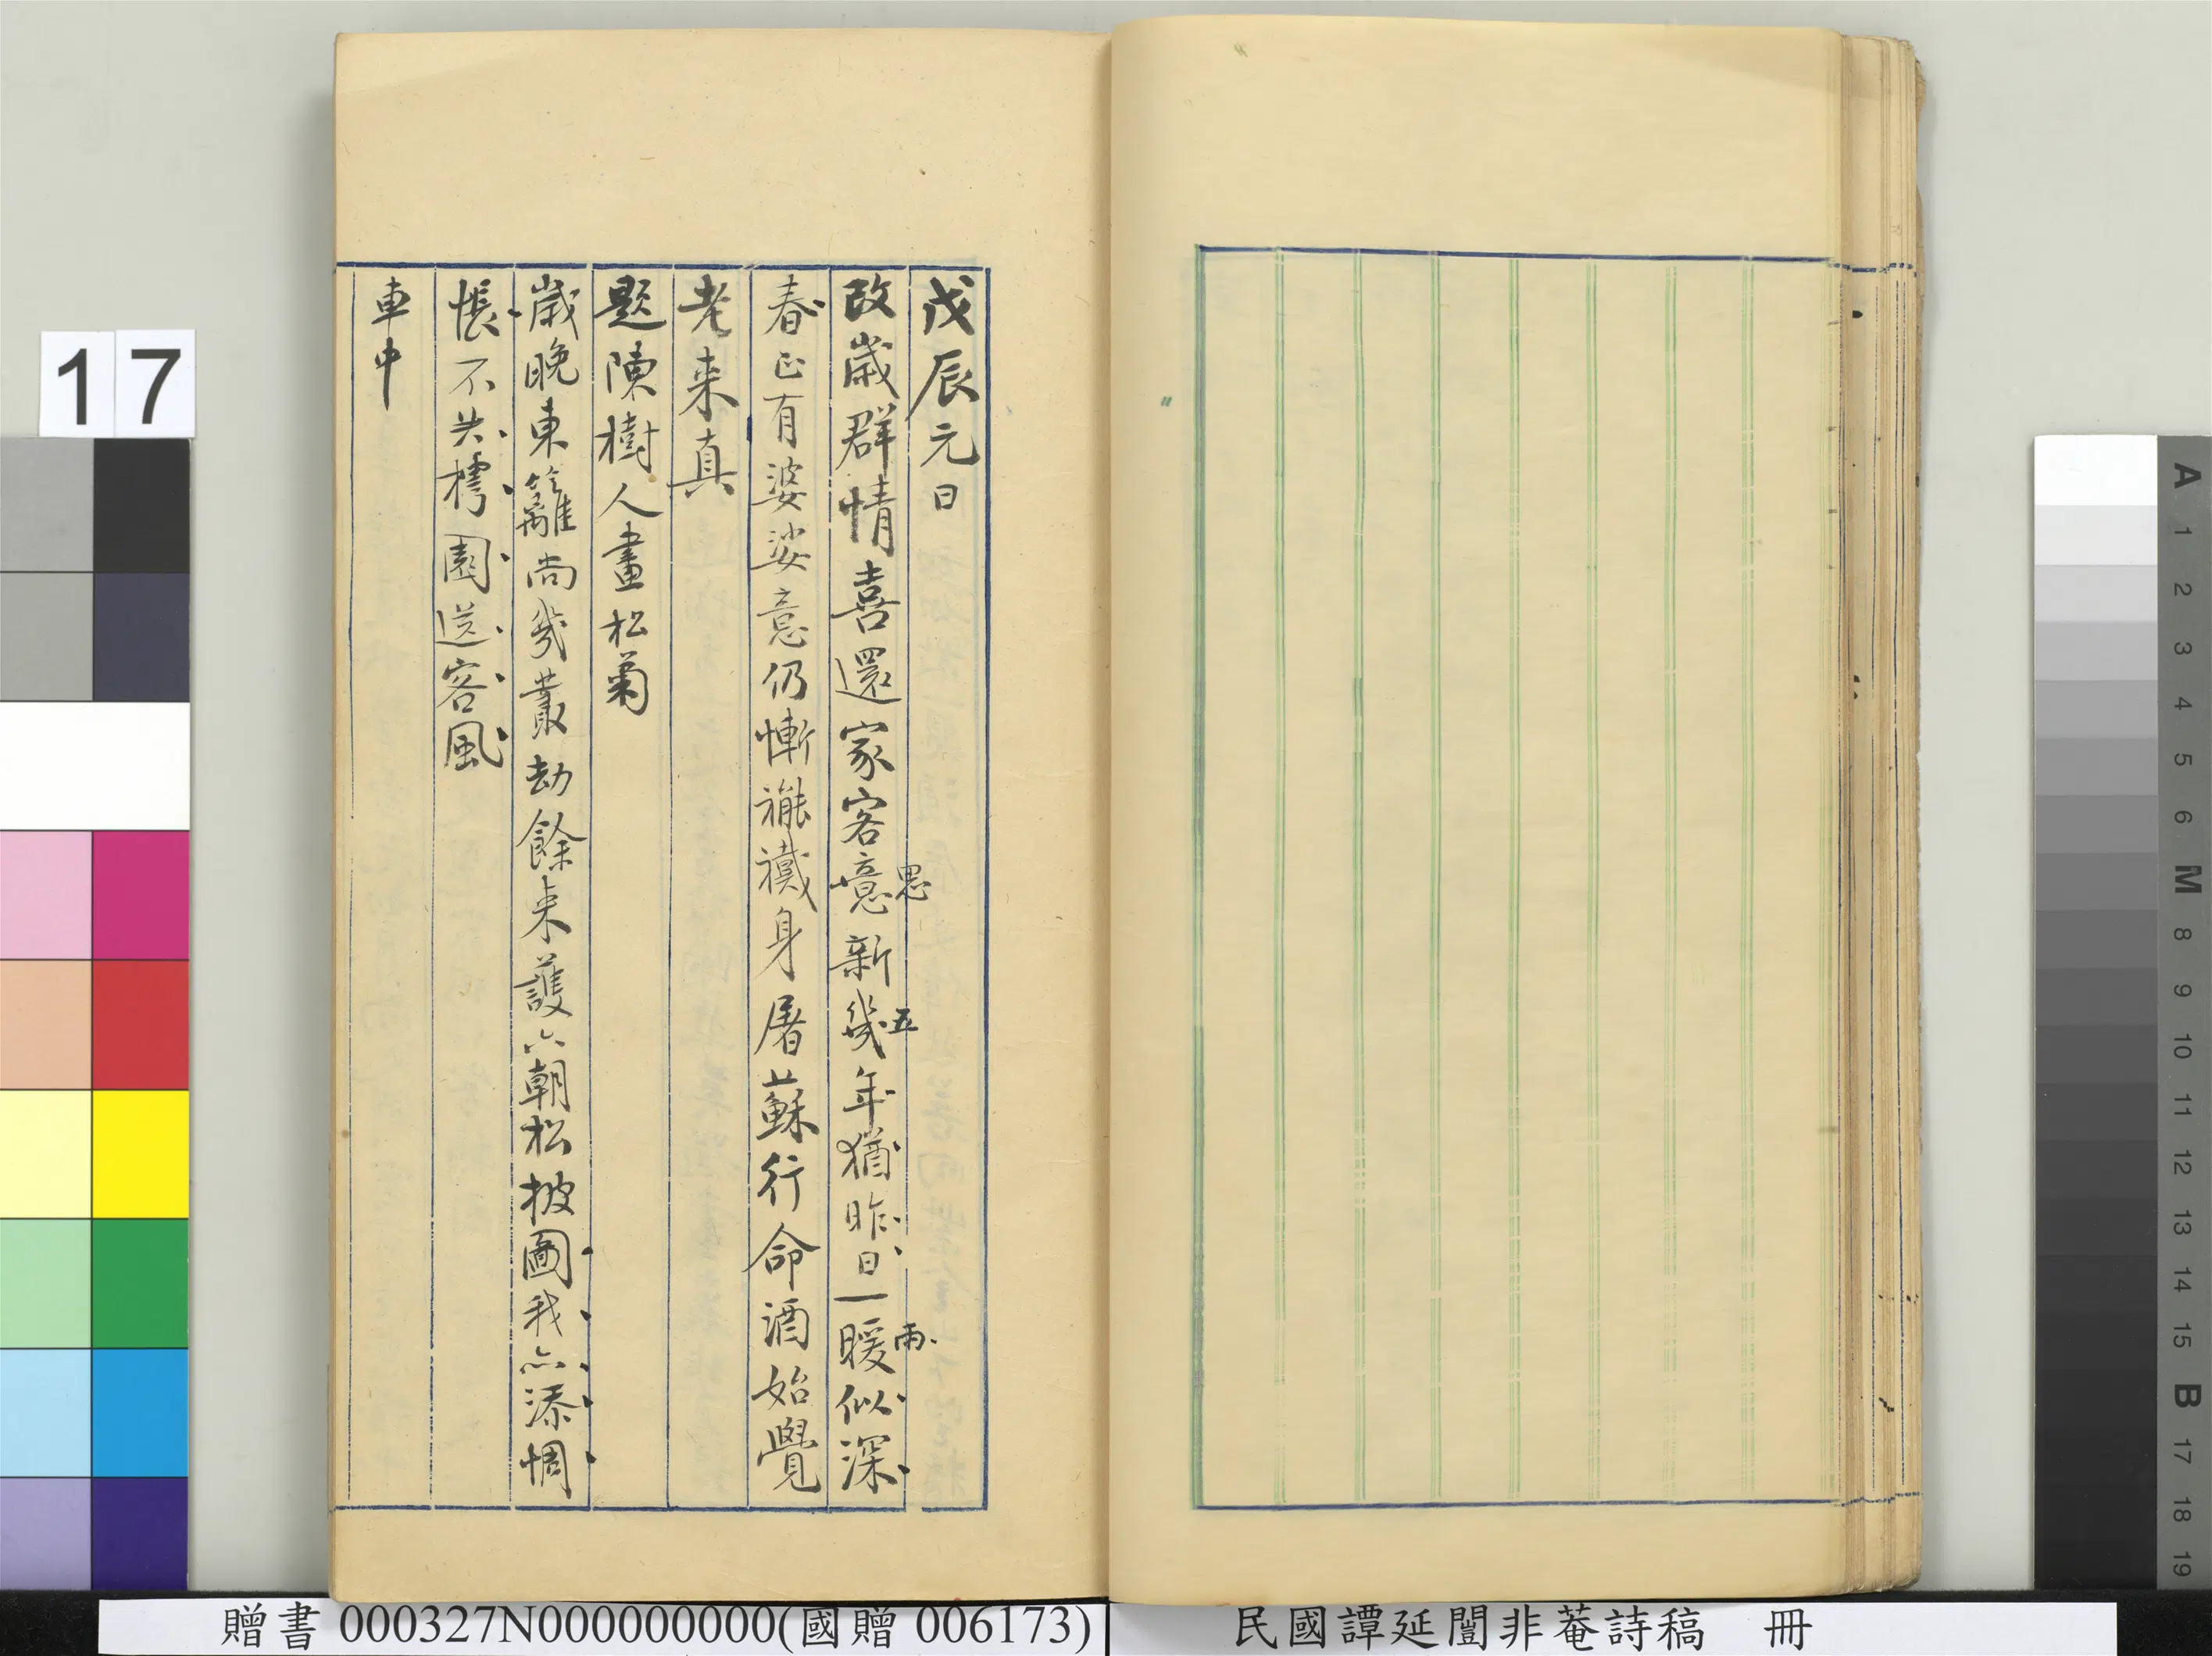 戊辰元日
改歲群情喜還家客意新幾年猶昨日一暖似深
思
五
雨
春正有婆娑意仍慚襳襶身屠蘇行命酒始覺
老来真
題陳樹人畫松菊
歲晚東籬尚幾叢劫餘来護六朝松披圖我亦添惆
悵不共樗園送客風
車中
17
贈書 000327N000000000(國贈 006173)
民國譚延闓非菴詩稿 冊
A
1
2
3
4
5
6
M
8
9
10
11
12
13
14
15
B
17
18
19